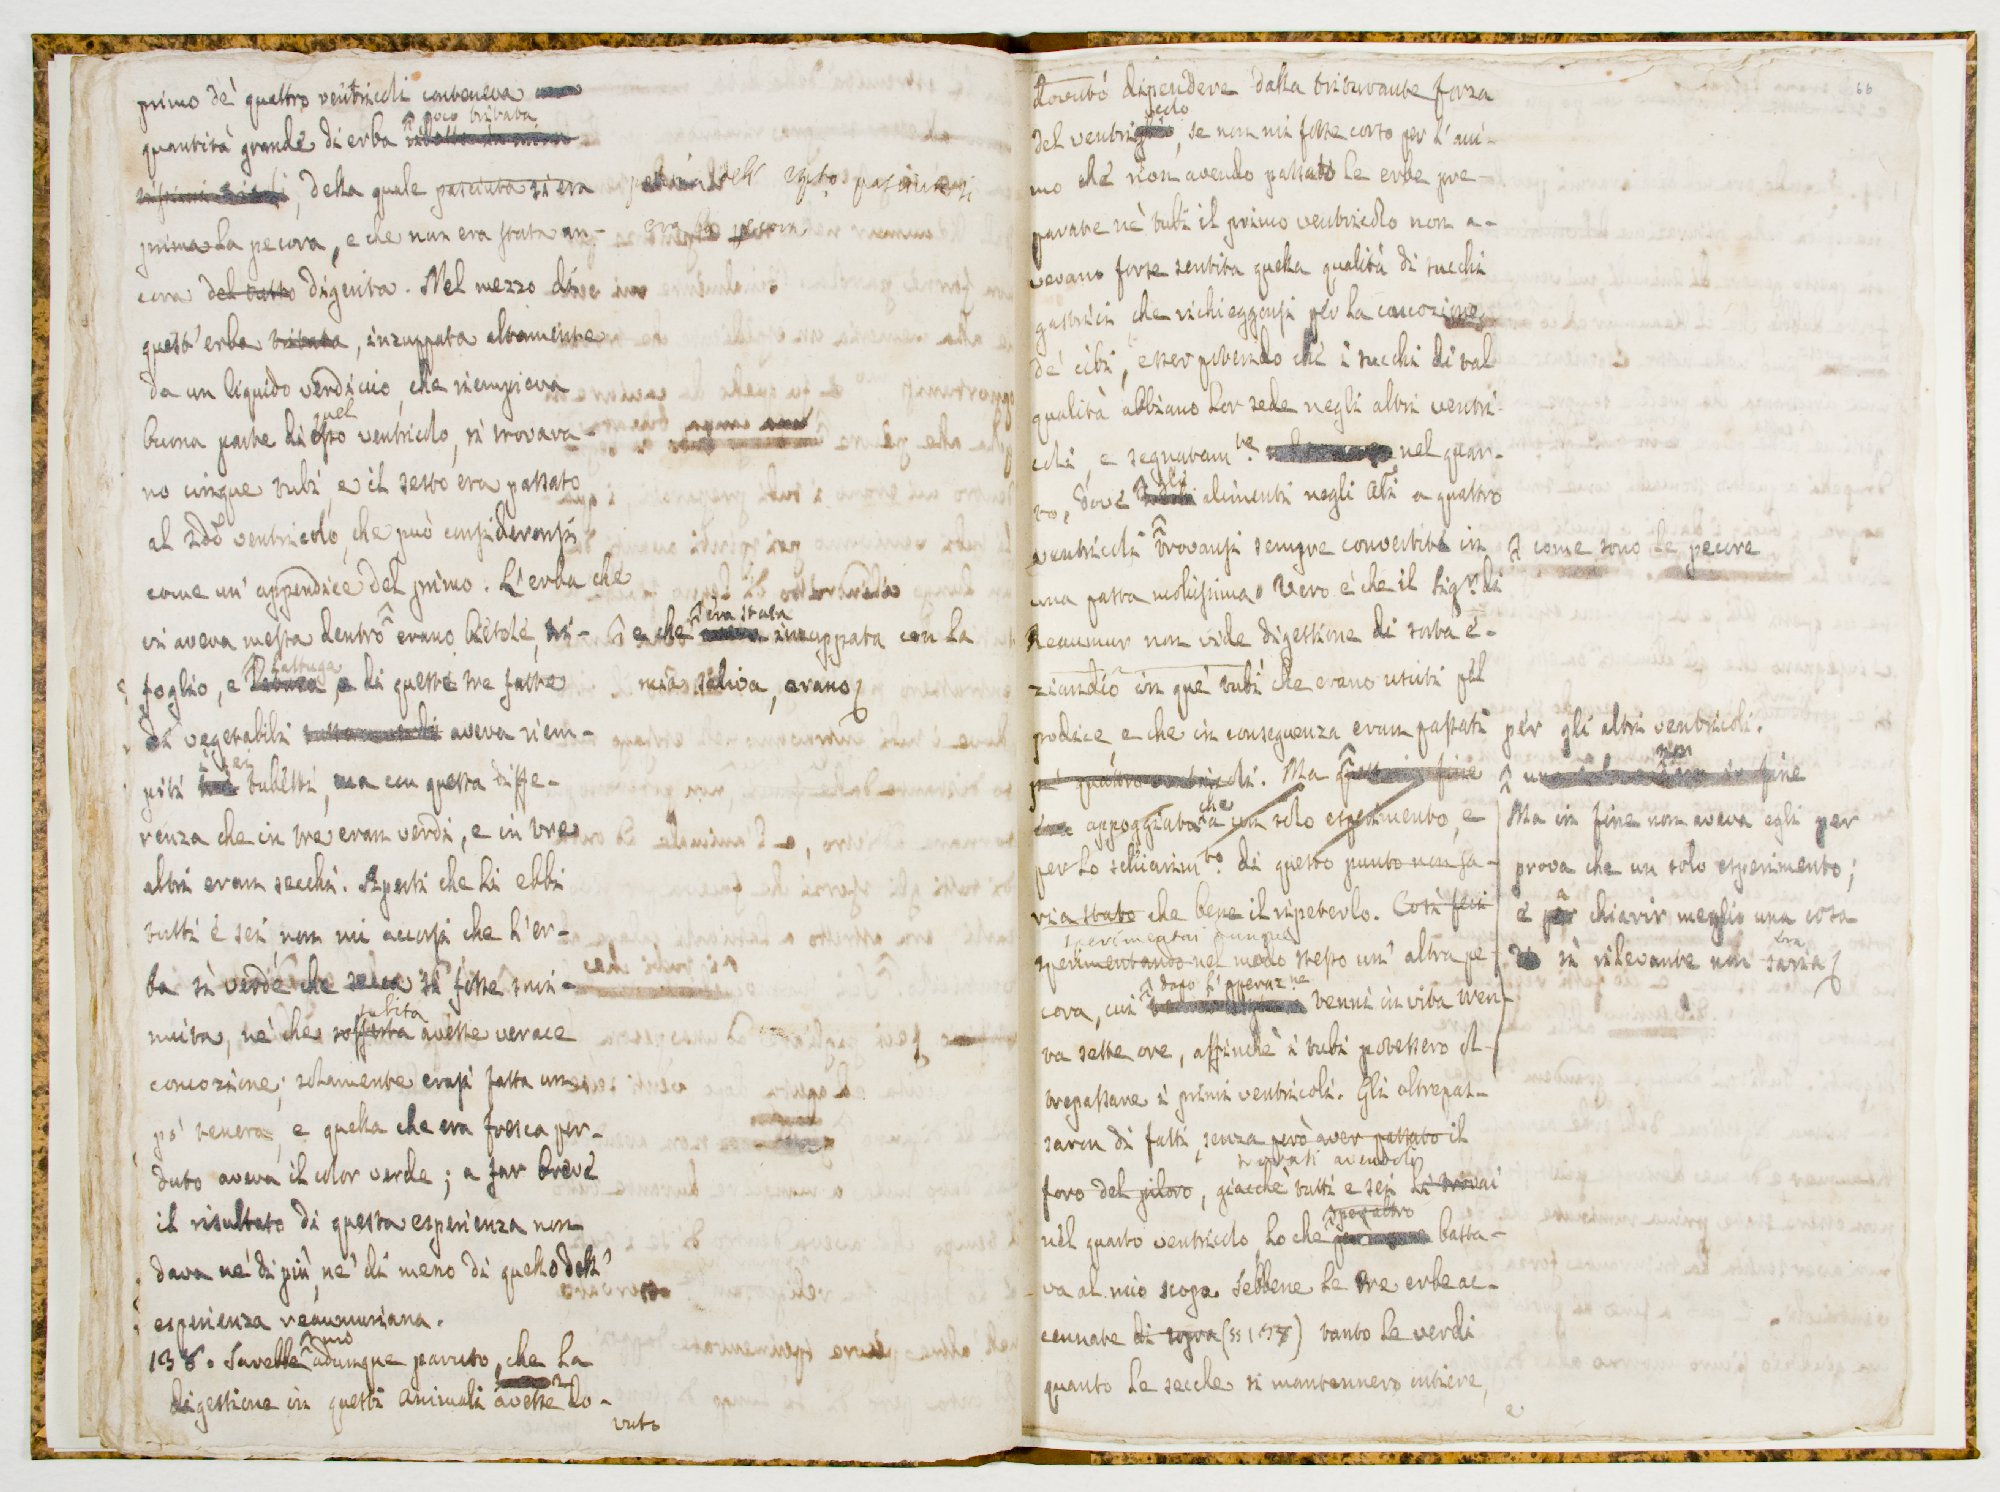 primo de' quattro ventricoli conteneva
quantità grande di erba poco tritata
della quale pasciuta si era
prima la pecora, e che non era stata an-
era la pecora
cora del tutto digerita. Nel mezzo di
quest'erba tritata, inzuppata altamente
da un liquido verdiccio, che riempieva
buona parte di quel ventricolo, si trovava-
no cinque tubi, e il sesto era passato
al 2do ventricolo, che può considerarsi
come un' appendice del primo. L'erba che
vi aveva messa dentro erano bietole, tri-
e che era stata inzuppata con la
mia saliva, erano
foglio, e lattuga, e di queste tre fatte
di vegetabili aveva riem-
piti i sei tubetti, ma con questa diffe-
renza che in tre eran verdi, e in tre
altri eran secchi. Aperti che li ebbi
tutti e sei non mi accorsi che l'er-
ba sì verde che secca si fosse smi-
nuita, nè che sofferta subita avesse verace
concozione; solamente erasi fatta un
po' tenera, e quella che era fresca per-
duto aveva il color verde; a far breve
il risultato di questa esperienza non
dava nè di più, nè di meno di quello dell'
esperienza reaumuriana.
138. Sarebbe adunque paruto, che la
digestione in questi animali avesse do-
vuto
66
dovuto dipendere dalla triturante forza
del ventricolo, se non mi fosse corso per l'ani-
mo che non avendo passato le erbe pre-
parate ne' tubi il primo ventricolo non a-
vevano forse sentita quella qualità di succhi
gastrici che richieggonsi per la concozione
de' cibi, esser potendo che i succhi di tal
qualità abbiano lor sede negli altri ventri-
coli, e segnatam.te nel quar-
to, dove gli alimenti negli a quattro
ventricoli trovansi sempre convertiti in
come sono le pecore
una pasta mollissima. Vero è che il Sig.r di
Reaumur non vide digestione di sorta e-
ziandio in que' tubi che erano usciti pel
podice e che in conseguenza eran passati per gli altri ventricoli.
pe' quattro ventricoli. Ma
appoggiata a un solo esperimento, e
Ma in fine non aveva egli per
per lo schiarim.to di questo punto non sa-
prova che un solo esperimento;
ria stato che bene il ripeterlo. Così feci
e a chiarir meglio una cosa
sperimentai dunque
sperimentando nel modo stesso un' altra pe-
sì rilevante non saria
cora, cui dopo l'operaz.ne tenni in vita tren-
ta sette ore, affinchè i tubi potessero ol-
trepassare i primi ventricoli. Gli oltrepas-
saron di fatti, senza però aver passato il
foro del piloro, giacchè tutti e sei li trovai
nel quarto ventricolo, lo che per altro basta-
va al mio scopo. Sebbene le tre erbe ac-
cennate di sopra (§ 137) tanto le verdi
quanto le secche si mantennero intiere,
e